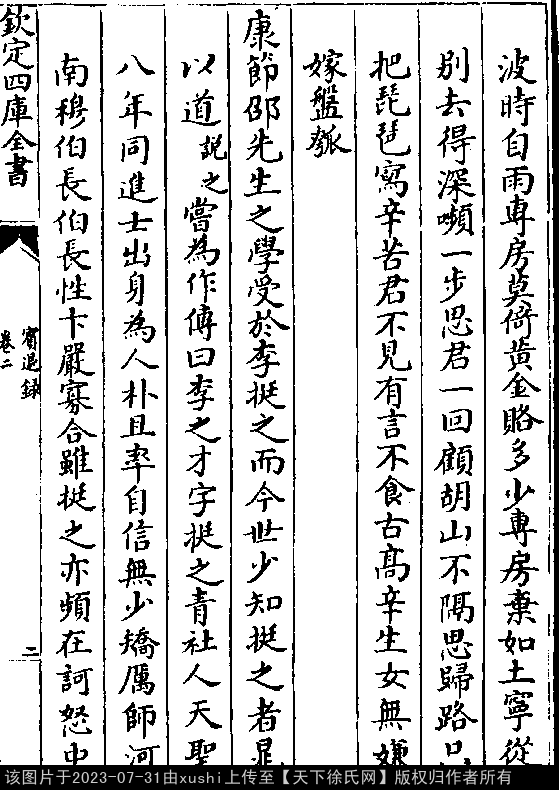 波時自雨専房莫倚黄金賂多少専房棄如土寧從
别去得深嚬一步思君一回顧胡山不隔思歸路只
把琵琶寫辛苦君不見有言不食古髙辛生女無嫌
嫁盤瓠
康節邵先生之學受於李挺之而今世少知挺之者晁
以道說之嘗為作傳曰李之才字挺之青社人天聖
八年同進士出身為人朴且率自信無少矯厲師河
南穆伯長伯長性卞嚴寡合雖挺之亦頻在訶怒中
欽定四庫全書
賓退録
卷二
二
该图片于2023-07-31由xushi上传至【天下徐氏网】版权归作者所有